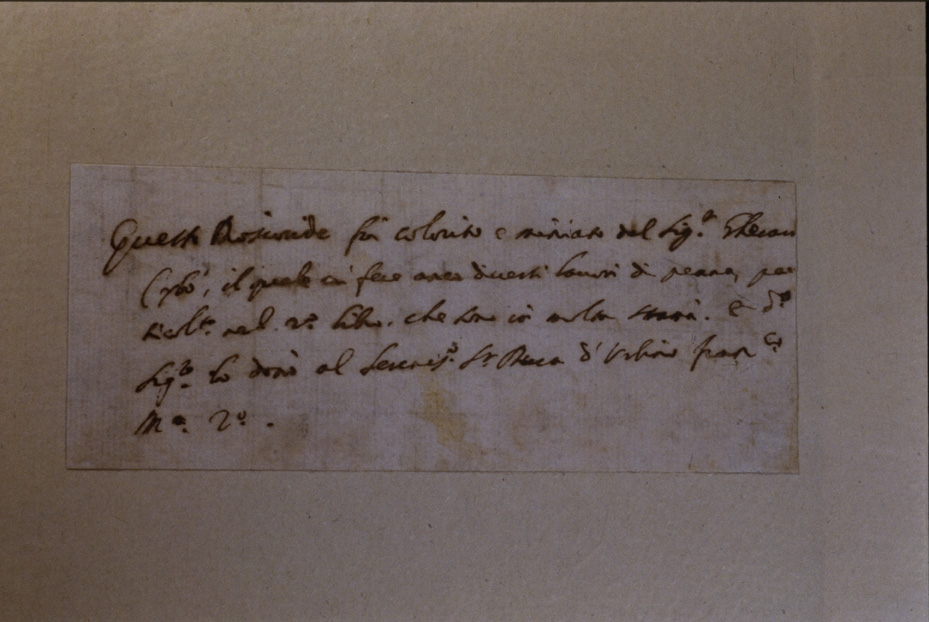 Questo Dioscoride fu colorito e miniato dal Sig.r Gherar
Cybo, il quale ci fece anco diversi lavori di penna, par
ticol.te nel 2.o libro. che sono in molta . E d.o
Sig.re lo donò al Seren.o S.r Duca d'Urbino fran.co
M.a 2.o .